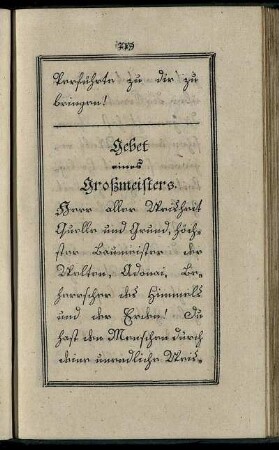 223
Verführte zu dir zu
bringen!
Gebet
eines
Großmeisters.
Herr aller Weisheit
Quelle und Grund, höch-
ster Baumeister der
Welten, Adonai, Be-
herrscher des Himmels
und der Erden! Du
hast den Menschen durch
deine unendliche Weis-